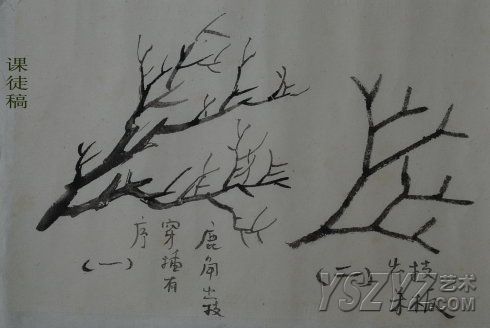 课徒稿
鹿角出枝
穿插有
序
(一)
(二)出枝
YSZYZ艺术